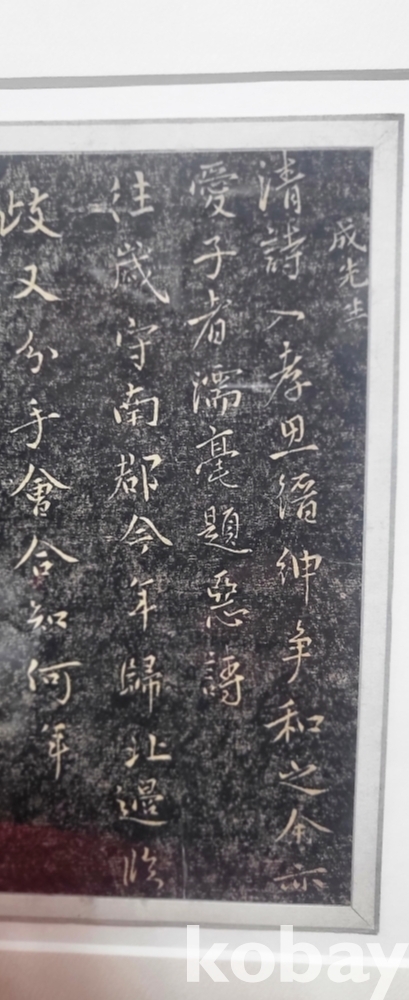 成先生
清詩入孝思縉紳争和之余亦
愛子者濡毫題惡詩
往歲守南都今年歸北邊臨
歧又分手會合知何年
kobay